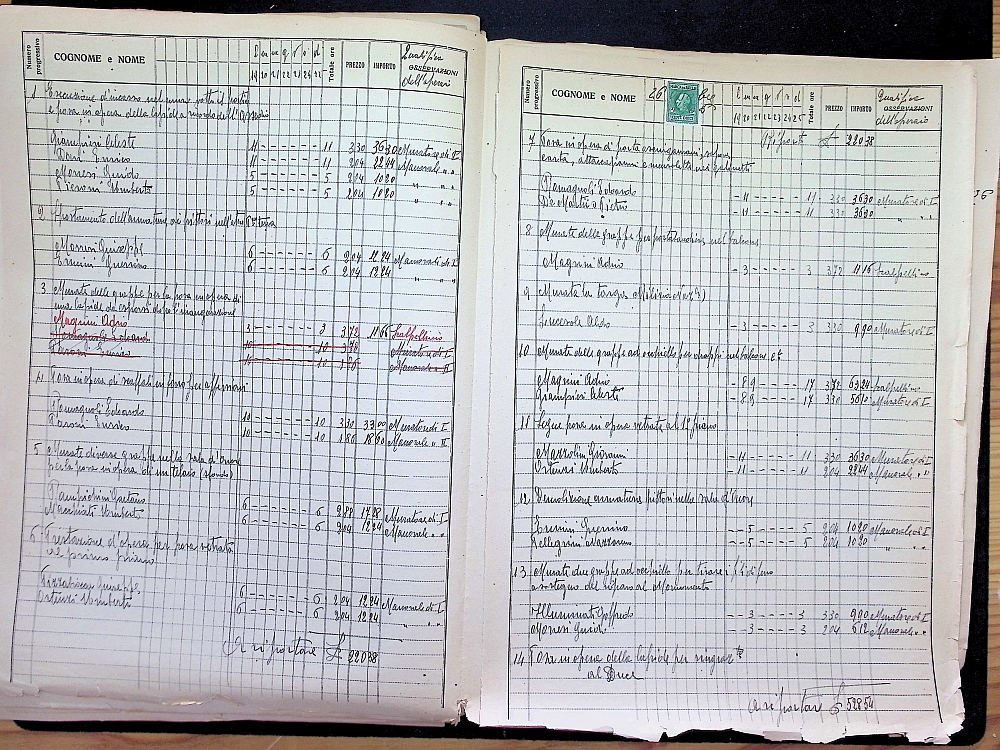 Numero progressivo COGNOME e NOME l m m g v s d Totale ore PREZZO IMPORTO Qualifica OSSERVAZIONI dell'operai
19 20 21 22 23 24 25
1 Esecuzione d'incasso nel muro sotto il portico
e posa in opera della lapide a ricordo dell'Assedio
Giampieri Celeste 11 - - - - - - 11 3.30 36.30 Muratore di I
Dari Enrico 11 - - - - - - 11 2.04 22.44 Manovale " "
Moresi Guido 5 - - - - - - 5 2.04 10.20 " "
Pieroni Umberto 5 - - - - - - 5 2.04 10.20 " "
2 Spostamento dell'armatura dei pittori nell'
Moresi Giuseppe 6 - - - - - - 6 2.04 12.24 Manovali di I
Ermini Guerrino 6 - - - - - - 6 2.04 12.24
3 Murate delle grappe per la posa in opera di
una lapide da esporsi dopo l'inaugurazione
Magnini Adrio 3 - - - - - - 3 3.72 11.66 Scalpellino
Romagnoli Edoardo 10 10 Muratore di I
Paroni Enrico 10 10 1.86 Manovale " II
4 Posa in opera di scaffali in
Romagnoli Edoardo 10 - - - - - - 10 3.30 33.00 Muratore di I
Paroni Enrico 10 - - - - - - 10 1.86 18.60 Manovale " II
5 Murate diverse grappe nella sala d'Onore
per la posa in opera di un telaio (sfondo)
Pampichini Gaetano 6 - - - - - - 6 2.88 17.28 Muratore di I
Macchiati Umberto 6 - - - - - - 6 2.04 12.24 Manovale " "
6 Prestazione d'opera per posa vetrata
al primo piano
Giuseppe 6 - - - - - - 6 2.04 12.24 Manovale di I
Ortenzi Umberto 6 - - - - - - 6 2.04 12.24 " "
A riportare £ 220.38
Numero progressivo COGNOME e NOME l m m g v s d Totale ore PREZZO IMPORTO Qualifica OSSERVAZIONI dell'operaio
19 20 21 22 23 24 25
Riporto £ 220.38
7 Posa in opera di porta asciugamani, sapone
carta, attaccapanni e mensolette nei gabinetti
Romagnoli Edoardo - 11 - - - - - 11 3.30 36.30 Muratore di I
De Mattia Pietro - 11 - - - - - 11 3.30 36.30 " "
8 Murate delle grappe per portabandiera nel balcone
Magnini Adrio - 3 - - - - - 3 3.72 11.16 Scalpellino
9 Murata la targa
Aldo - 3 - - - - - 3 3.30 9.90 Muratore di I
10 Murate delle grappe ad occhiello per drappi nel balcone
Magnini Adrio - 8 9 - - - - 17 3.72 63.24 Scalpellino
Giampieri Celeste - 8 9 - - - - 17 3.30 56.10 Muratore di I
11 Segue posa in opera vetrata al 1° piano
Mazzolini Giovanni - 11 - - - - - 11 3.30 36.30 Muratore di I
Ortenzi Umberto - 11 - - - - - 11 2.04 22.44 Manovale " "
12 Demolizione armatura pittori nella sala d'Onore
Ermini Guerrino - 5 - - - - - 5 2.04 10.20 Manovale di I
Pellegrini Nazzareno - 5 - - - - - 5 2.04 10.20 " "
13 Murate due grappe ad occhiello per tirare i fili di ferro
a sostegno del riparo al Monumento
Illuminati Goffredo - 3 - - - - - 3 3.30 9.90 Muratore di I
Moresi Guido - 3 - - - - - 3 2.04 6.12 Manovale " "
14 Posa in opera della lapide per
al Duce
A riportare £ 528.54